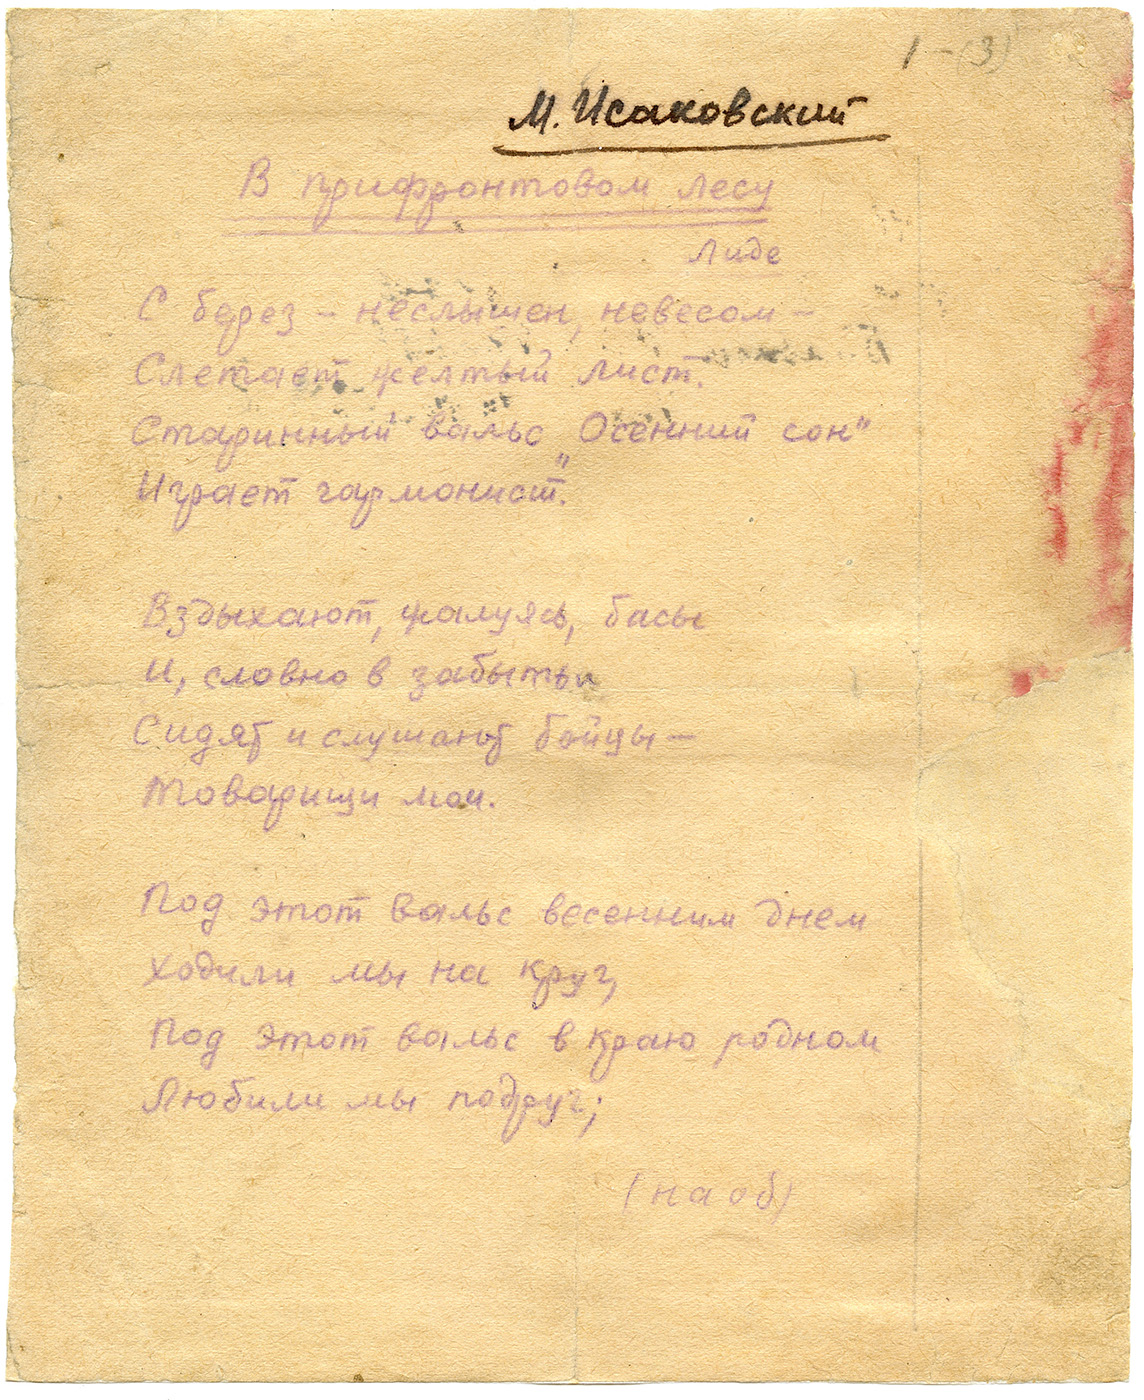 1 – (3)
М. Исаковский
В прифронтовом лесу
Лиде
С берез – неслышен, невесом –
Слетает желтый лист.
Старинный вальс „Осенний сон"
Играет гармонист.
Вздыхают, жалуясь, басы
И, словно в забытьи
Сидят и слушают бойцы –
Товарищи мои.
Под этот вальс весенним днем
Ходили мы на круг,
Под этот вальс в краю родном
Любили мы подруг;
(на об)